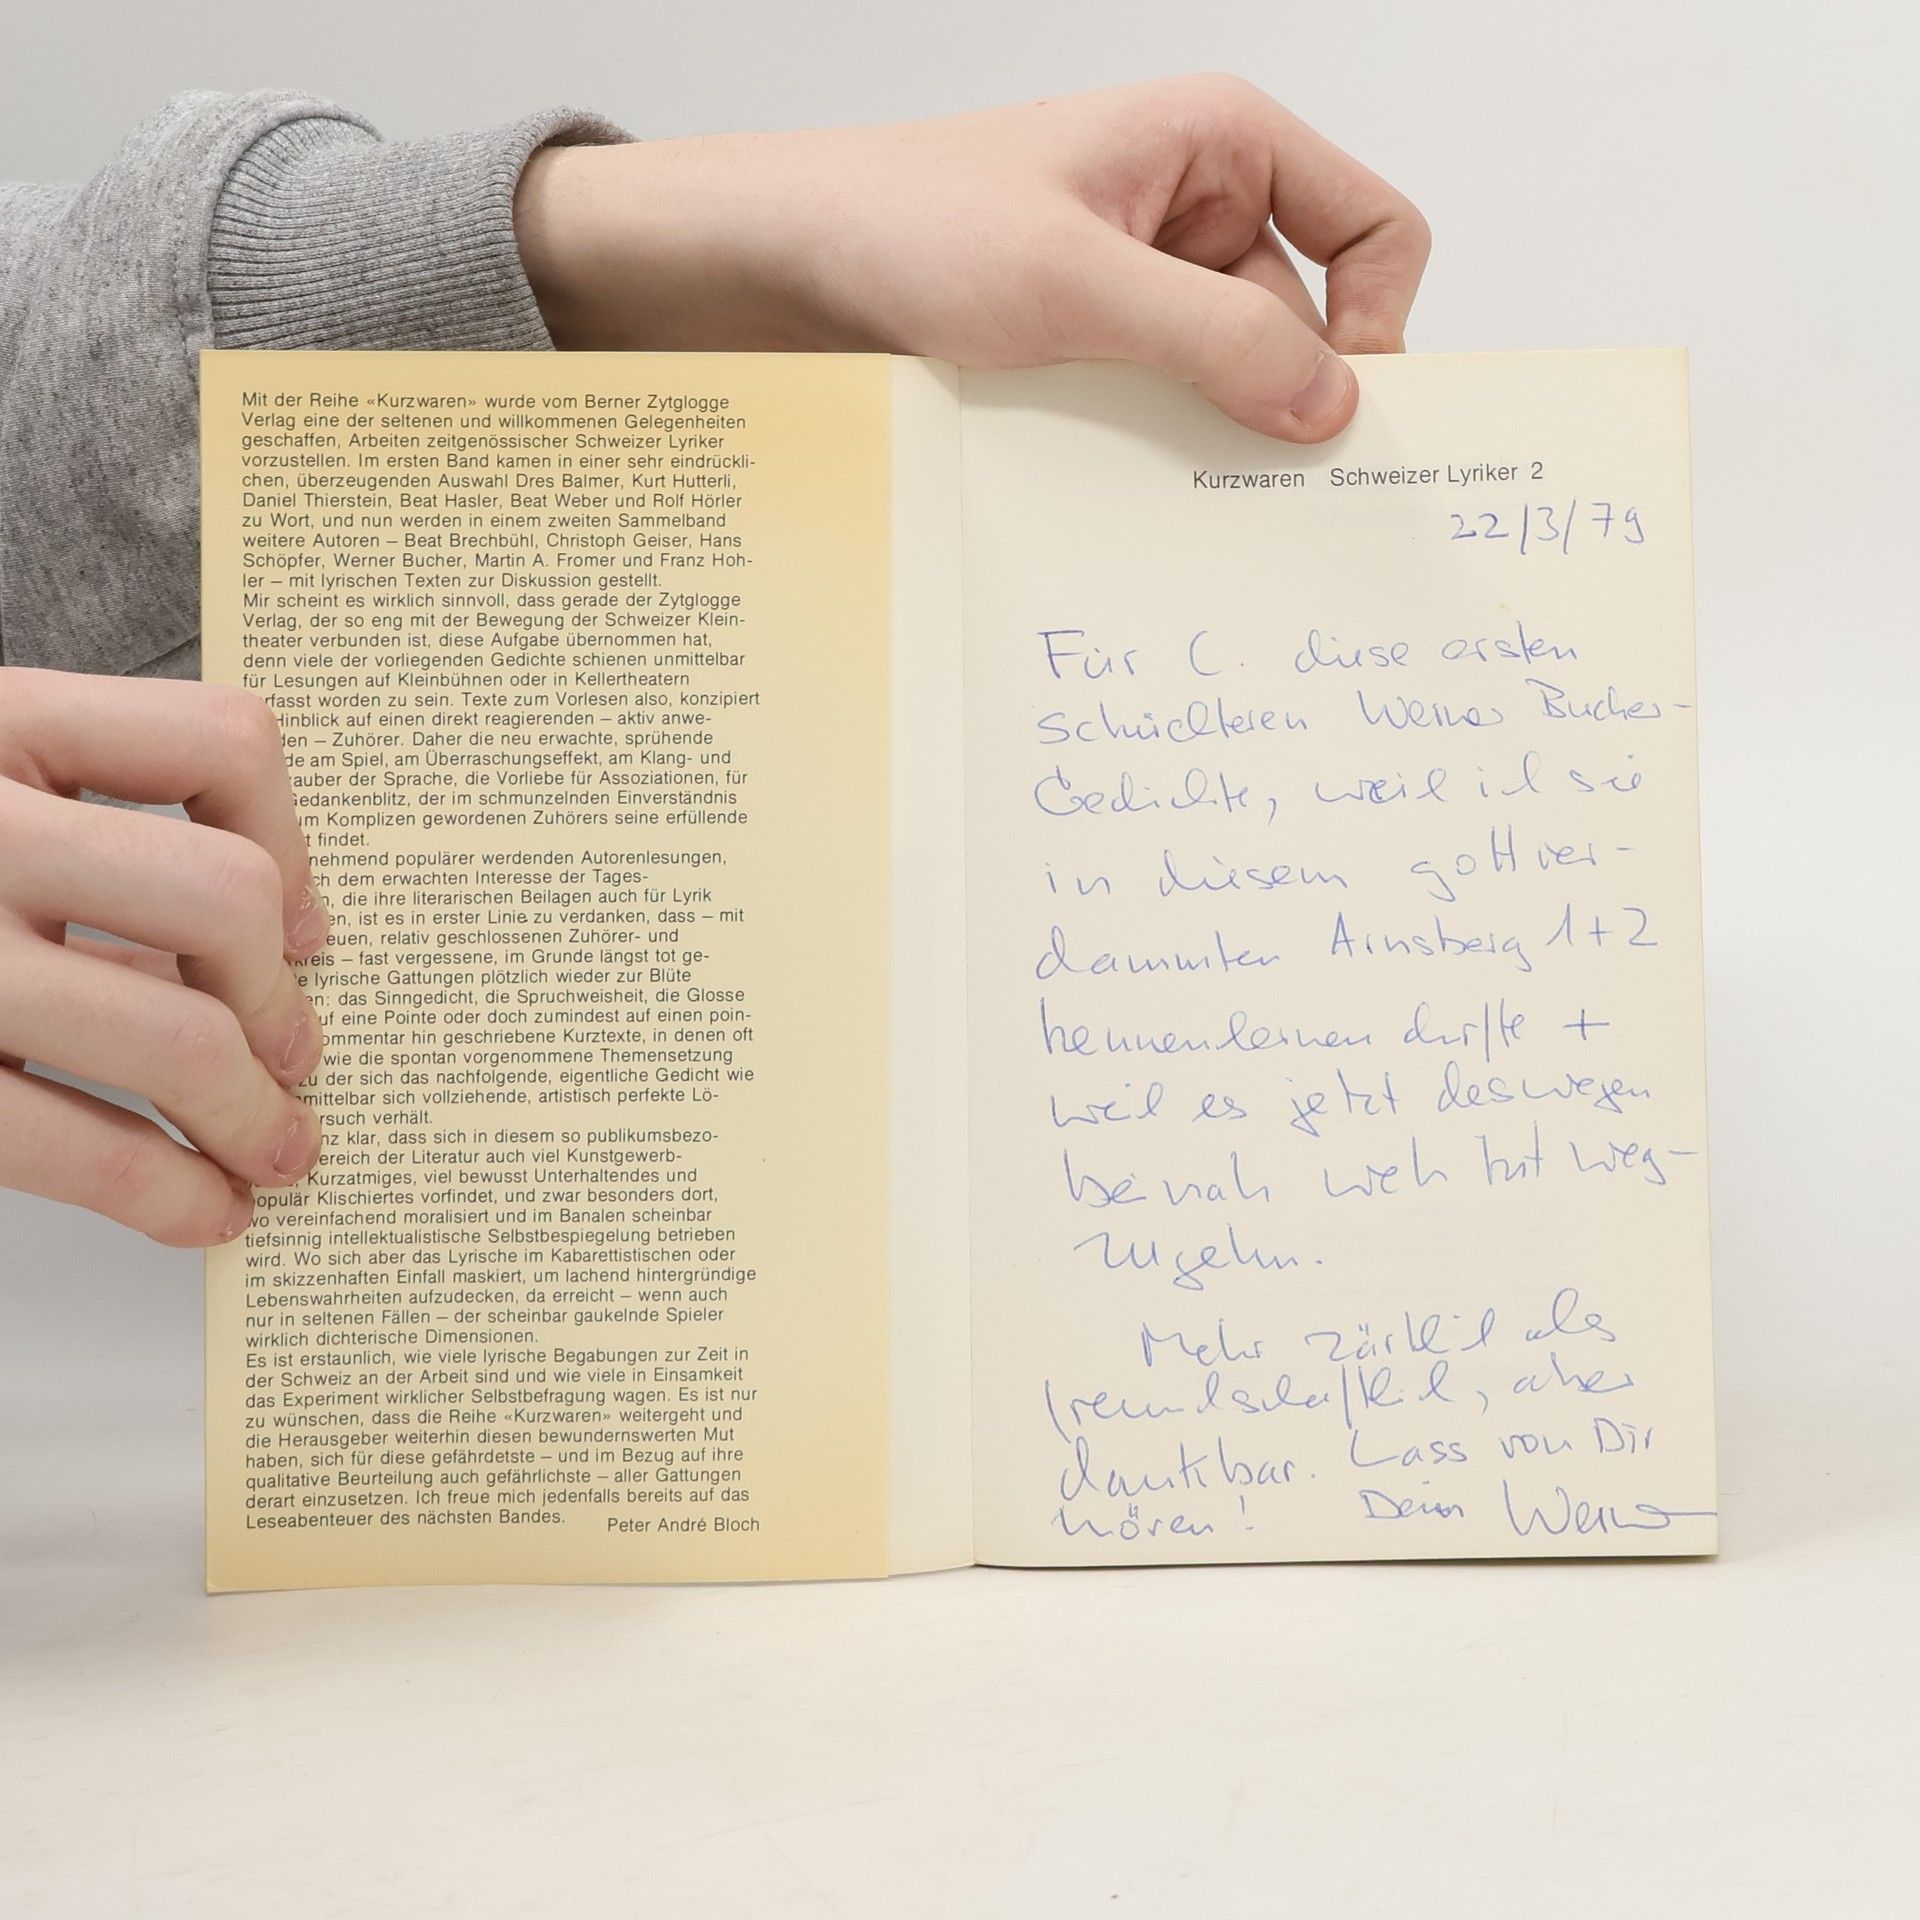 Mit der Reihe «Kurzwaren» wurde vom Berner Zytglogge
Verlag eine der seltenen und willkommenen Gelegenheiten
geschaffen, Arbeiten zeitgenössischer Schweizer Lyriker
vorzustellen. Im ersten Band kamen in einer sehr eindrückli-
chen, überzeugenden Auswahl Dres Balmer, Kurt Hutterli,
Daniel Thierstein, Beat Hasler, Beat Weber und Rolf Hörler
zu Wort, und nun werden in einem zweiten Sammelband
weitere Autoren – Beat Brechbühl, Christoph Geiser, Hans
Schöpfer, Werner Bucher, Martin A. Fromer und Franz Hoh-
ler – mit lyrischen Texten zur Diskussion gestellt.
Mir scheint es wirklich sinnvoll, dass gerade der Zytglogge
Verlag, der so eng mit der Bewegung der Schweizer Klein-
theater verbunden ist, diese Aufgabe übernommen hat,
denn viele der vorliegenden Gedichte schienen unmittelbar
für Lesungen auf Kleinbühnen oder in Kellertheatern
rfasst worden zu sein. Texte zum Vorlesen also, konzipiert
Hinblick auf einen direkt reagierenden – aktiv anwe-
den – Zuhörer. Daher die neu erwachte, sprühende
de am Spiel, am Überraschungseffekt, am Klang- und
zauber der Sprache, die Vorliebe für Assoziationen, für
Gedankenblitz, der im schmunzelnden Einverständnis
um Komplizen gewordenen Zuhörers seine erfüllende
t findet.
nehmend populärer werdenden Autorenlesungen,
ch dem erwachten Interesse der Tages-
n, die ihre literarischen Beilagen auch für Lyrik
en, ist es in erster Linie zu verdanken, dass – mit
euen, relativ geschlossenen Zuhörer- und
kreis – fast vergessene, im Grunde längst tot ge-
e lyrische Gattungen plötzlich wieder zur Blüte
en: das Sinngedicht, die Spruchweisheit, die Glosse
uf eine Pointe oder doch zumindest auf einen poin-
ommentar hin geschriebene Kurztexte, in denen oft
wie die spontan vorgenommene Themensetzung
zu der sich das nachfolgende, eigentliche Gedicht wie
mittelbar sich vollziehende, artistisch perfekte Lö-
rsuch verhält.
nz klar, dass sich in diesem so publikumsbezo-
ereich der Literatur auch viel Kunstgewerb-
Kurzatmiges, viel bewusst Unterhaltendes und
populär Klischiertes vorfindet, und zwar besonders dort,
wo vereinfachend moralisiert und im Banalen scheinbar
tiefsinnig intellektualistische Selbstbespiegelung betrieben
wird. Wo sich aber das Lyrische im Kabarettistischen oder
im skizzenhaften Einfall maskiert, um lachend hintergründige
Lebenswahrheiten aufzudecken, da erreicht – wenn auch
nur in seltenen Fällen – der scheinbar gaukelnde Spieler
wirklich dichterische Dimensionen.
Es ist erstaunlich, wie viele lyrische Begabungen zur Zeit in
der Schweiz an der Arbeit sind und wie viele in Einsamkeit
das Experiment wirklicher Selbstbefragung wagen. Es ist nur
zu wünschen, dass die Reihe «Kurzwaren» weitergeht und
die Herausgeber weiterhin diesen bewundernswerten Mut
haben, sich für diese gefährdetste – und im Bezug auf ihre
qualitative Beurteilung auch gefährlichste – aller Gattungen
derart einzusetzen. Ich freue mich jedenfalls bereits auf das
Leseabenteuer des nächsten Bandes.
Peter André Bloch
Kurzwaren Schweizer Lyriker 2
22/3/79
Für C. diese ersten
schüchternen Werner Bucher-
Gedichte, weil ich sie
in diesem gottver-
dammten Arnsberg 1+2
kennenlernen durfte +
weil es jetzt deswegen
beinah weh tut weg-
zugehn.
Mehr zärtlich als
freundschaftlich, aber
dankbar. Lass von Dir
hören! Dein Werner